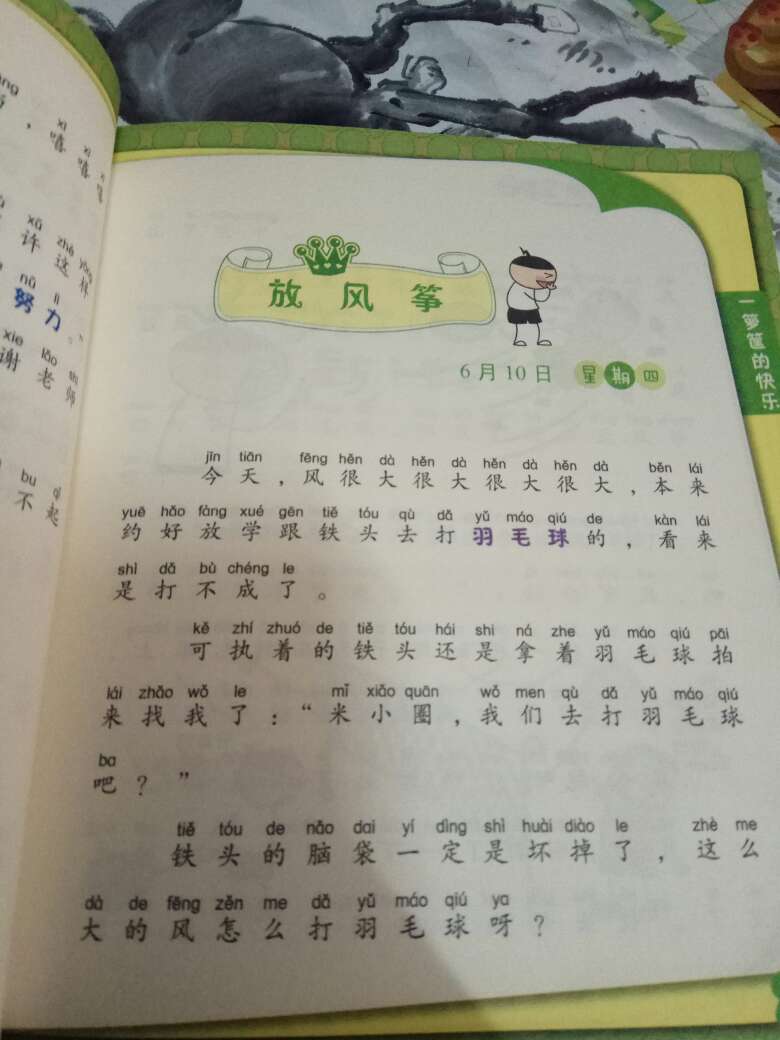 xī xī
，嘻嘻嘻
xǔ zhè yàng
许这样
nǔ lì
努力。
xie lǎo shī
谢老师
bu qǐ
不起
放风筝
6月10日 星期四
一箩筐的快乐
jīn tiān fēng hěn dà hěn dà hěn dà hěn dà běn lái
今天，风很大很大很大很大，本来
yuē hǎo fàng xué gēn tiě tóu qù dǎ yǔ máo qiú de kàn lái
约好放学跟铁头去打羽毛球的，看来
shì dǎ bù chéng le
是打不成了。
kě zhí zhuó de tiě tóu hái shi ná zhe yǔ máo qiú pāi
可执着的铁头还是拿着羽毛球拍
lái zhǎo wǒ le mǐ xiǎo quān wǒ men qù dǎ yǔ máo qiú
来找我了：“米小圈，我们去打羽毛球
ba
吧？”
tiě tóu de nǎo dai yí dìng shì huài diào le zhè me
铁头的脑袋一定是坏掉了，这么
dà de fēng zěn me dǎ yǔ máo qiú ya
大的风怎么打羽毛球呀？